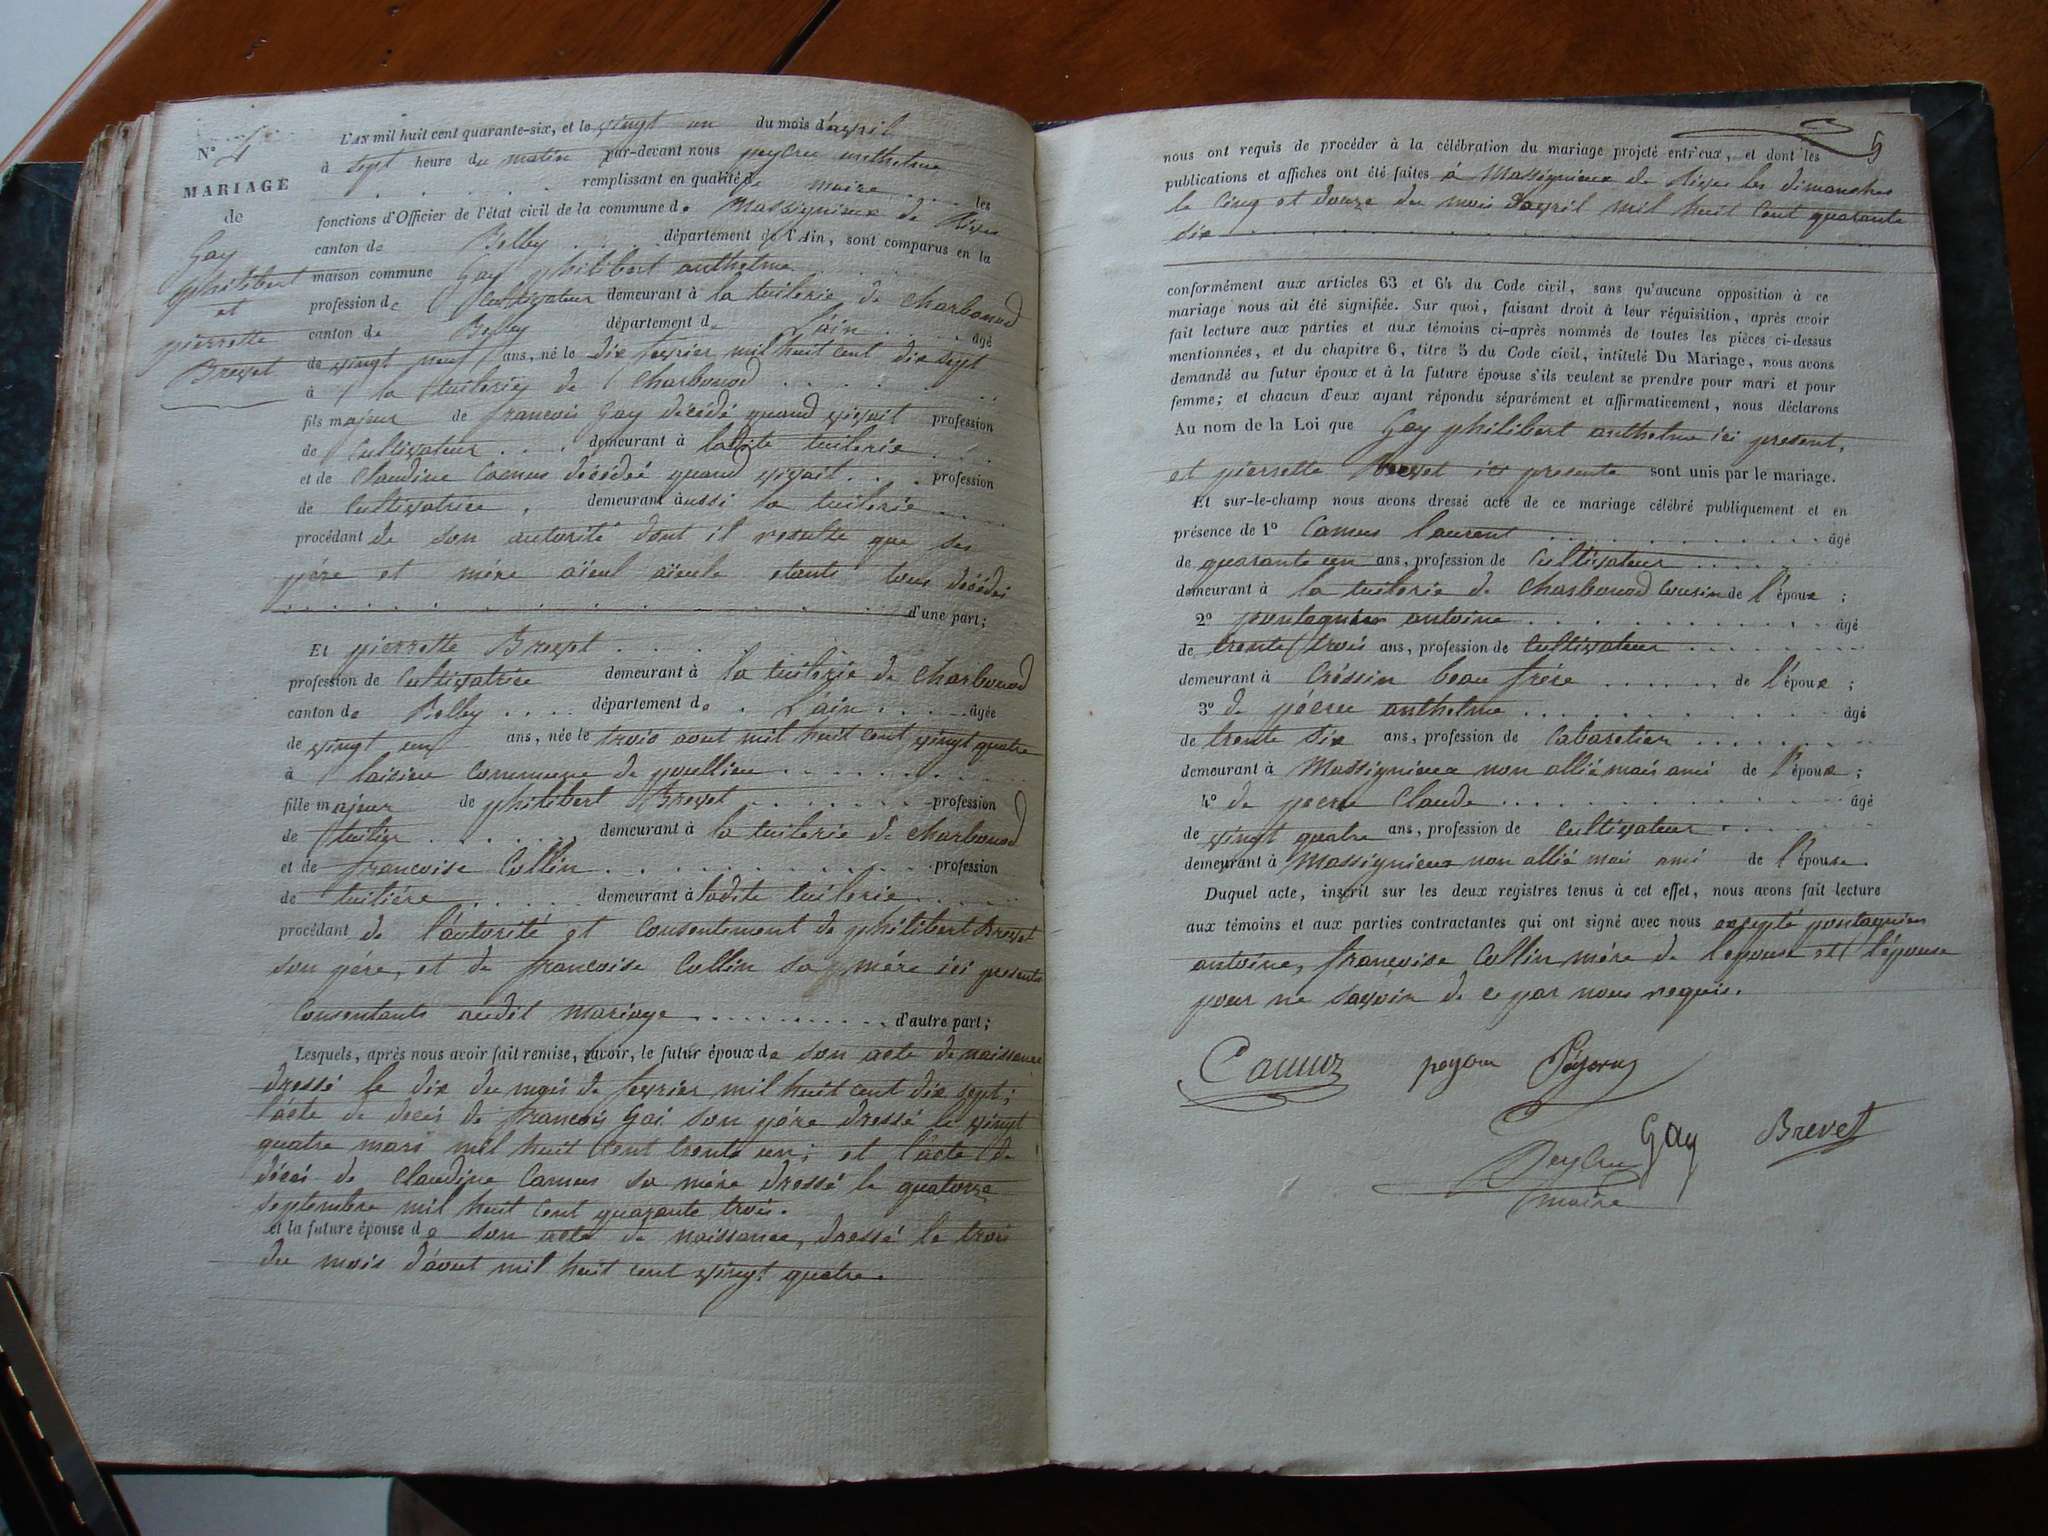 N° 4
MARIAGE
de
Gay
philibert
et
pierrette
Brevet
L'AN mil huit cent quarante-six, et le vingt un du mois d'avril
à sept heure du matin par-devant nous peycru anthelme
remplissant en qualité de maire les
fonctions d'Officier de l'état civil de la commune de Massignieux de Rives
canton de Belley département de l'Ain, sont comparus en la
maison commune Gay philibert anthelme
profession de Cultivateur demeurant à la tuilerie de Charbonod
canton de Belley département de l'ain âgé
de vingt neuf ans, né le dix fevrier mil huit cent dix sept
à la tuilerie de Charbonod
fils majeur de francois Gay décédé quand vivait profession
de Cultivateur demeurant à ladite tuilerie
et de Claudine Camus décédée quand vivait profession
de Cultivatrice, demeurant aussi la tuilerie
procédant de son autorité dont il resulte que ses
père et mère aïeul aïeule etants tous décédés
d'une part;
Et pierrette Brevet
profession de Cultivatrice demeurant à la tuilerie de Charbonod
canton de Belley département de l'ain âgée
de vingt un ans, née le trois aout mil huit cent vingt quatre
à laisieu Commune de poullieu
fille majeur de philibert Brevet profession
de tuilier demeurant à la tuilerie de Charbonod
et de francoise Collin profession
de tuiliére demeurant à ladite tuilerie
procédant de l'autorité et Consentement de philibert Brevet
son pére, et de francoise Collin sa mére ici presents
Consentants audit mariage d'autre part;
Lesquels, après nous avoir fait remise, savoir, le futur époux de son acte de naissance
dressé le dix du mois de fevrier mil huit cent dix sept;
l'acte de decés de francois Gai son pére dressé le vingt
quatre mars mil huit Cent trente un; et l'acte de
décés de Claudine Camus sa mére dressé le quatorze
septembre mil huit Cent quarante trois.
et la future épouse de son acte de naissance, dressé le trois
du mois d'aout mil huit cent vingt quatre.
5
nous ont requis de procéder à la célébration du mariage projeté entr'eux, et dont les
publications et affiches ont été faites à Massignieux de Rives les dimanches
le Cinq et douze du mois d'avril mil huit Cent quarante
six
conformément aux articles 63 et 64 du Code civil, sans qu'aucune opposition à ce
mariage nous ait été signifiée. Sur quoi, faisant droit à leur réquisition, après avoir
fait lecture aux parties et aux témoins ci-après nommés de toutes les pièces ci-dessus
mentionnées, et du chapitre 6, titre 5 du Code civil, intitulé Du Mariage, nous avons
demandé au futur époux et à la future épouse s'ils veulent se prendre pour mari et pour
femme; et chacun d'eux ayant répondu séparément et affirmativement, nous déclarons
Au nom de la Loi que Gay philibert anthelme ici present,
et pierrette Brevet ici presente sont unis par le mariage.
Et sur-le-champ nous avons dressé acte de ce mariage célébré publiquement et en
présence de 1° Camus laurent âgé
de quarante un ans, profession de Cultivateur
demeurant à la tuilerie de Charbonod Cousin de l'époux;
2° pontagnier antoine âgé
de trente trois ans, profession de Cultivateur
demeurant à Créssin beau frére de l'époux;
3° de pécru anthelme âgé
de trente six ans, profession de Cabaretier
demeurant à Massignieux non allié mais ami de l'époux;
4° de pecru Claude âgé
de vingt quatre ans, profession de Cultivateur
demeurant à Massignieux non allié mais ami de l'épouse.
Duquel acte, inscrit sur les deux registres tenus à cet effet, nous avons fait lecture
aux témoins et aux parties contractantes qui ont signé avec nous excepté pontagnier
antoine, françoise Collin mére de l'épouse et l'épouse
pour ne savoir de ce par nous requis.
Camuz
Gay Brevet
Peycru
maire